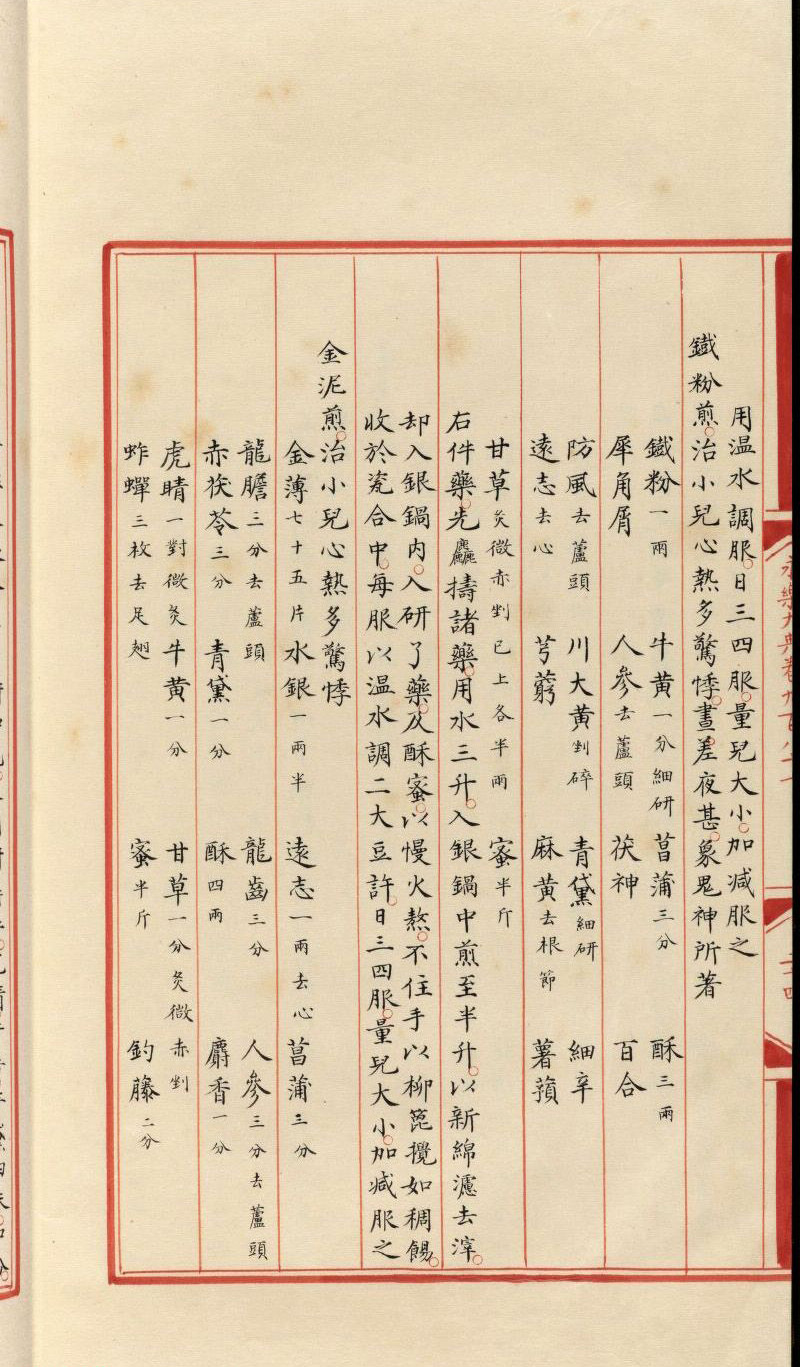 永樂大典卷九百八十一
二十四
用温水調服。日三四服。量兒大小。加减服之
鐵粉煎。治小兒心熱多驚悸。晝差夜甚。象鬼神所著
鐵粉一兩 牛黃一分細研 菖蒲三分 酥三兩
犀角屑 人參去蘆頭 茯神 百合
防風去蘆頭 川大黃剉碎 青黛細研 細辛
遠志去心 芎藭 麻黃去根節 薯蕷
甘草炙微赤剉已上各半兩 蜜半斤
右件藥。先麤擣諸藥。用水三升。入銀鍋中煎至半升。以新綿濾去滓。
却入銀鍋内。入研了藥。及酥蜜。以慢火熬。不住手以柳箆攪如稠餳。
收於瓷合中。每服以温水調二大豆許。日三四服。量兒大小。加减服之
金泥煎。治小兒心熱多驚悸
金薄七十五片 水銀一兩半 遠志一兩去心 菖蒲三分
龍膽三分去蘆頭 龍齒三分 人參三分去蘆頭
赤茯苓三分 青黛一分 酥四兩 麝香一分
虎睛一對微炙 牛黃一分 甘草一分炙微赤剉
蚱蟬三枚去足翅 蜜半斤 釣藤二分